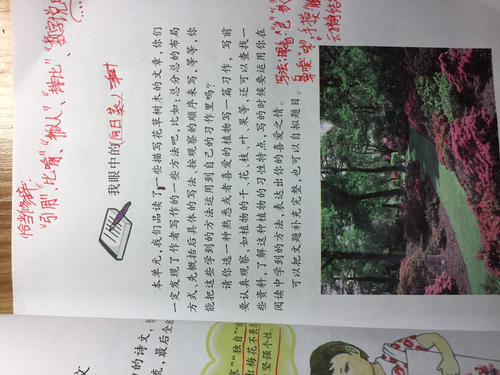 恰当修辞:
“引用”、“比喻”、“拟人”、“排比”、“数字说明”
我眼中的(向日葵)
本单元,我们品读了一些描写花草树木的文章,你们
一定发现了作者写作的一些方法吧,比如:总分总的布局
方式、先概括后具体的写法、按观察的顺序来写,等等,你
能把这些学到的方法运用到自己的习作里吗?
请你选一种熟悉或者喜爱的植物写一篇习作,写前
要认真观察,如植物的干、花、枝、叶、果等,还可以查找一
些资料,了解这种植物的习性特点,写的时候要运用你在
阅读中学到的方法,表达出你的喜爱之情。
可以把文题补充完整,也可以自拟题目。
写法:
文
的诗文,
竟,最后全
“独自”
出梅花不畏
坚强个性。